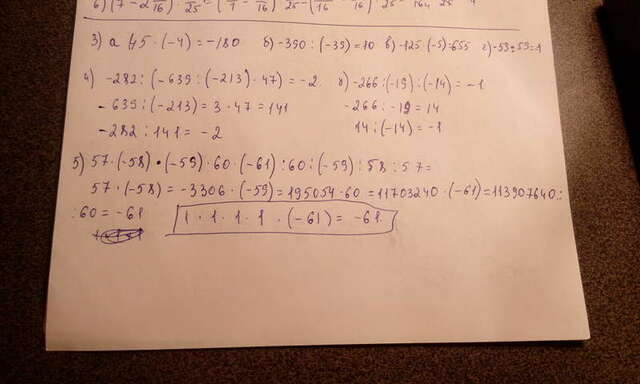 3) а 45 · (-4) = -180 б) -390 : (-39) = 10 в) -125 · (-5) = 655 г) -59 : 59 = 1
4) -282 : (-639 : (-213) · 47) = -2 -266 · (-19) : (-14) = -1
-639 : (-213) = 3 · 47 = 141 -266 : -19 = 14
-282 : 141 = -2 14 : (-14) = -1
5) 57 · (-58) · (-59) · 60 · (-61) : 60 : (-59) : 58 : 57 =
57 · (-58) = -3306 · (-59) = 195054 · 60 = 11703240 · (-61) = 113907640 :
: 60 = -61 1 · 1 · 1 · 1 · (-61) = -61